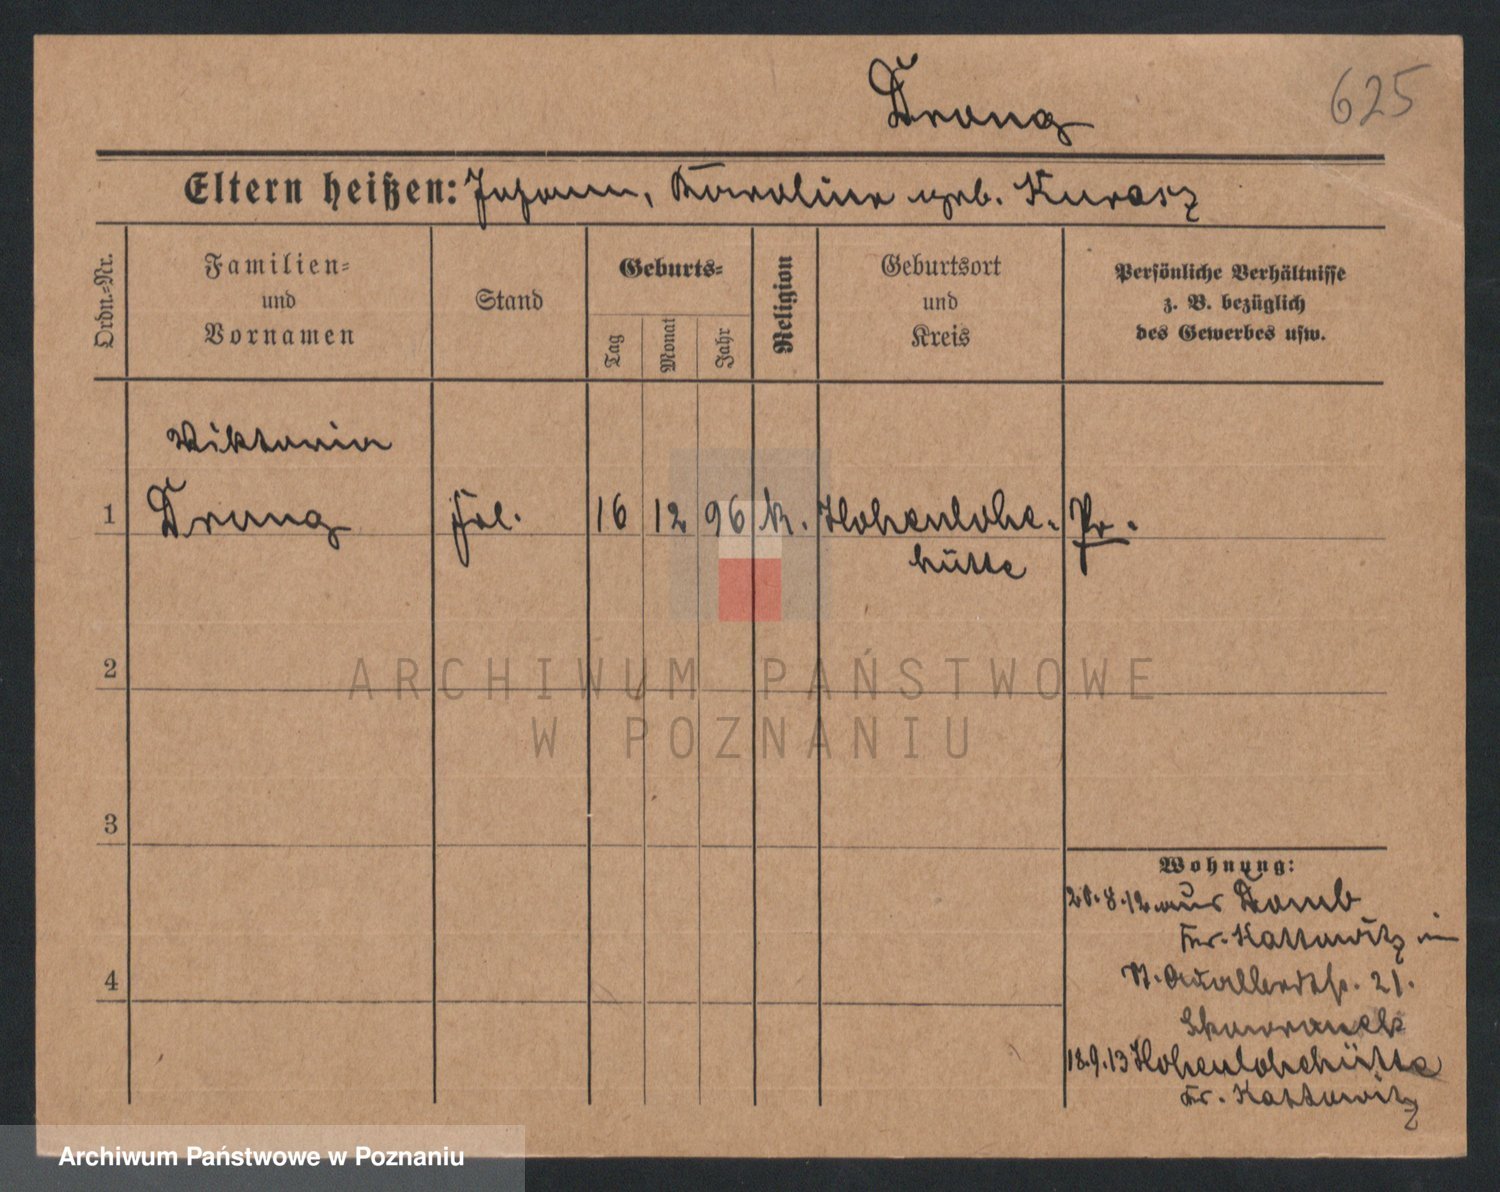 Drong
625
Eltern heißen: Johann, Karoline geb. Kurasz
Ordn.-Nr.
Familien-
und
Vornamen
Stand
Geburts-
Tag
Monat
Jahr
Religion
Geburtsort
und
Kreis
Persönliche Verhältnisse
z. B. bezüglich
des Gewerbes usw.
Viktoria
1 Drong Frl. 16 12 96 k. Hohenlohe- Pr.
hütte
2
3
4
Wohnung:
20.8.12 aus Domb
Kr. Kattowitz in
21.
Skowronek
18.9.13 Hohenlohehütte
Kr. Kattowitz
ARCHIWUM PAŃSTWOWE
W POZNANIU
Archiwum Państwowe w Poznaniu